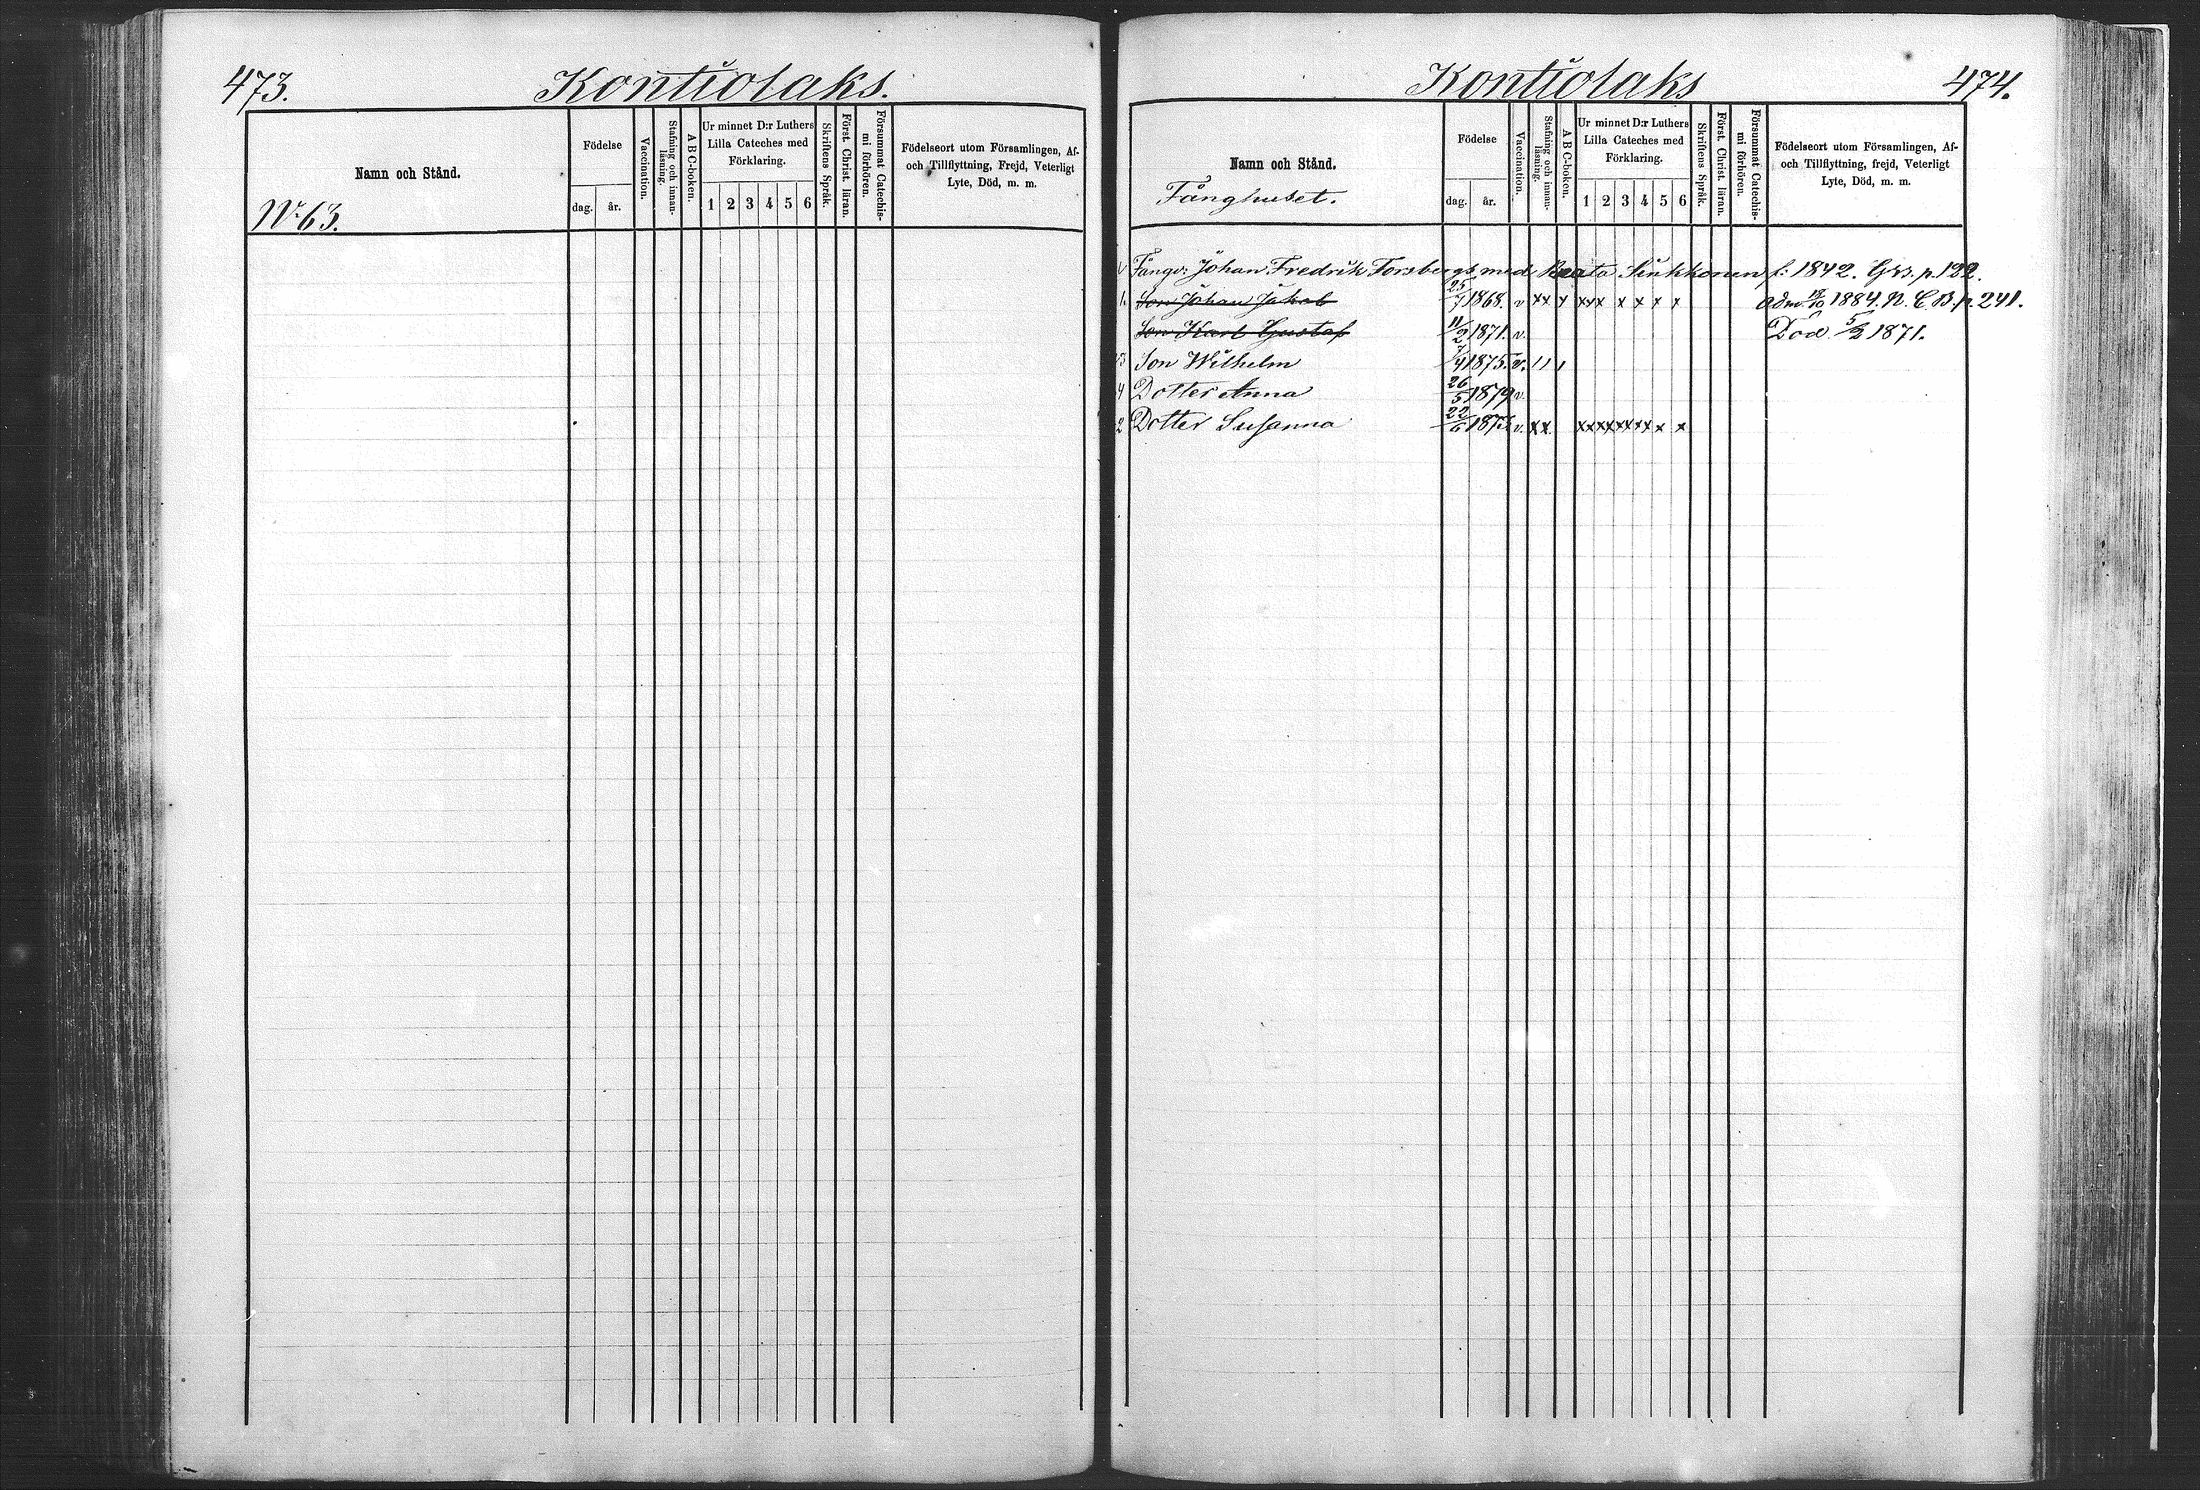 473.
Kontiolaks.
Namn och Stånd.
Födelse
dag.
år.
Vaccination.
Stafning och innan-
läsning.
A B C-boken.
Ur minnet D:r Luthers
Lilla Cateches med
Förklaring.
1 2 3 4 5 6
Skriftens Språk.
Först. Christ. läran.
Försummat Catechis-
mi förhören.
Födelseort utom Församlingen, Af-
och Tillflyttning, Frejd, Veterligt
Lyte, Död, m. m.
No 63.
Kontiolaks
474.
Namn och Stånd.
Fånghuset.
Födelse
dag.
år.
Vaccination.
Stafning och innan-
läsning.
A B C-boken.
Ur minnet D:r Luthers
Lilla Cateches med
Förklaring.
1 2 3 4 5 6
Skriftens Språk.
Först. Christ. läran.
Försummat Catechis-
mi förhören.
Födelseort utom Församlingen, Af-
och Tillflyttning, frejd, Veterligt
Lyte, Död, m. m.
Fångv: Johan Fredrik Forsbergs med Beata Sinkkonen f: 1842. Grs. p. 122.
1. Son Johan Jakob 25/7 1868. v xx x xxx x x x x adm. 1884. N. C. B. p. 241.
Son Karl Gustaf 11/2 1871. v. Död 5/3 1871.
3 Son Wilhelm 7/4 1875. v. 11 1
4 Dotter Anna 26/5 1879 v.
2 Dotter Susanna 22/6 v. xx. xxxxxxxx x x